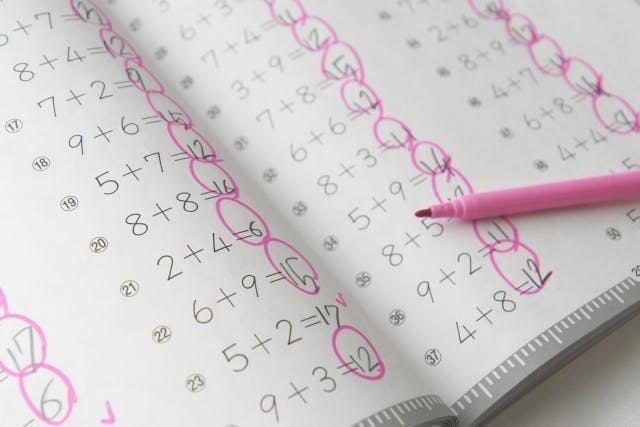 8+4=12
7+2=9
⑰
⑱ 9+6=15
⑲ 5+7=12
⑳ 8+8=16
㉑ 2+4=6
㉒ 6+9=15
㉓ 5+2=17
9+3=12
17
6
7+4=11
3+9=12
㉛ 7+8=15
㉜ 6+6=12
㉝ 8+3=11
㉞ 5+9=14
㉟ 8+5
㊱ 9+2=11
㊲ 4+8=12
2+6
8+9
4+7
6+8
4+4=8